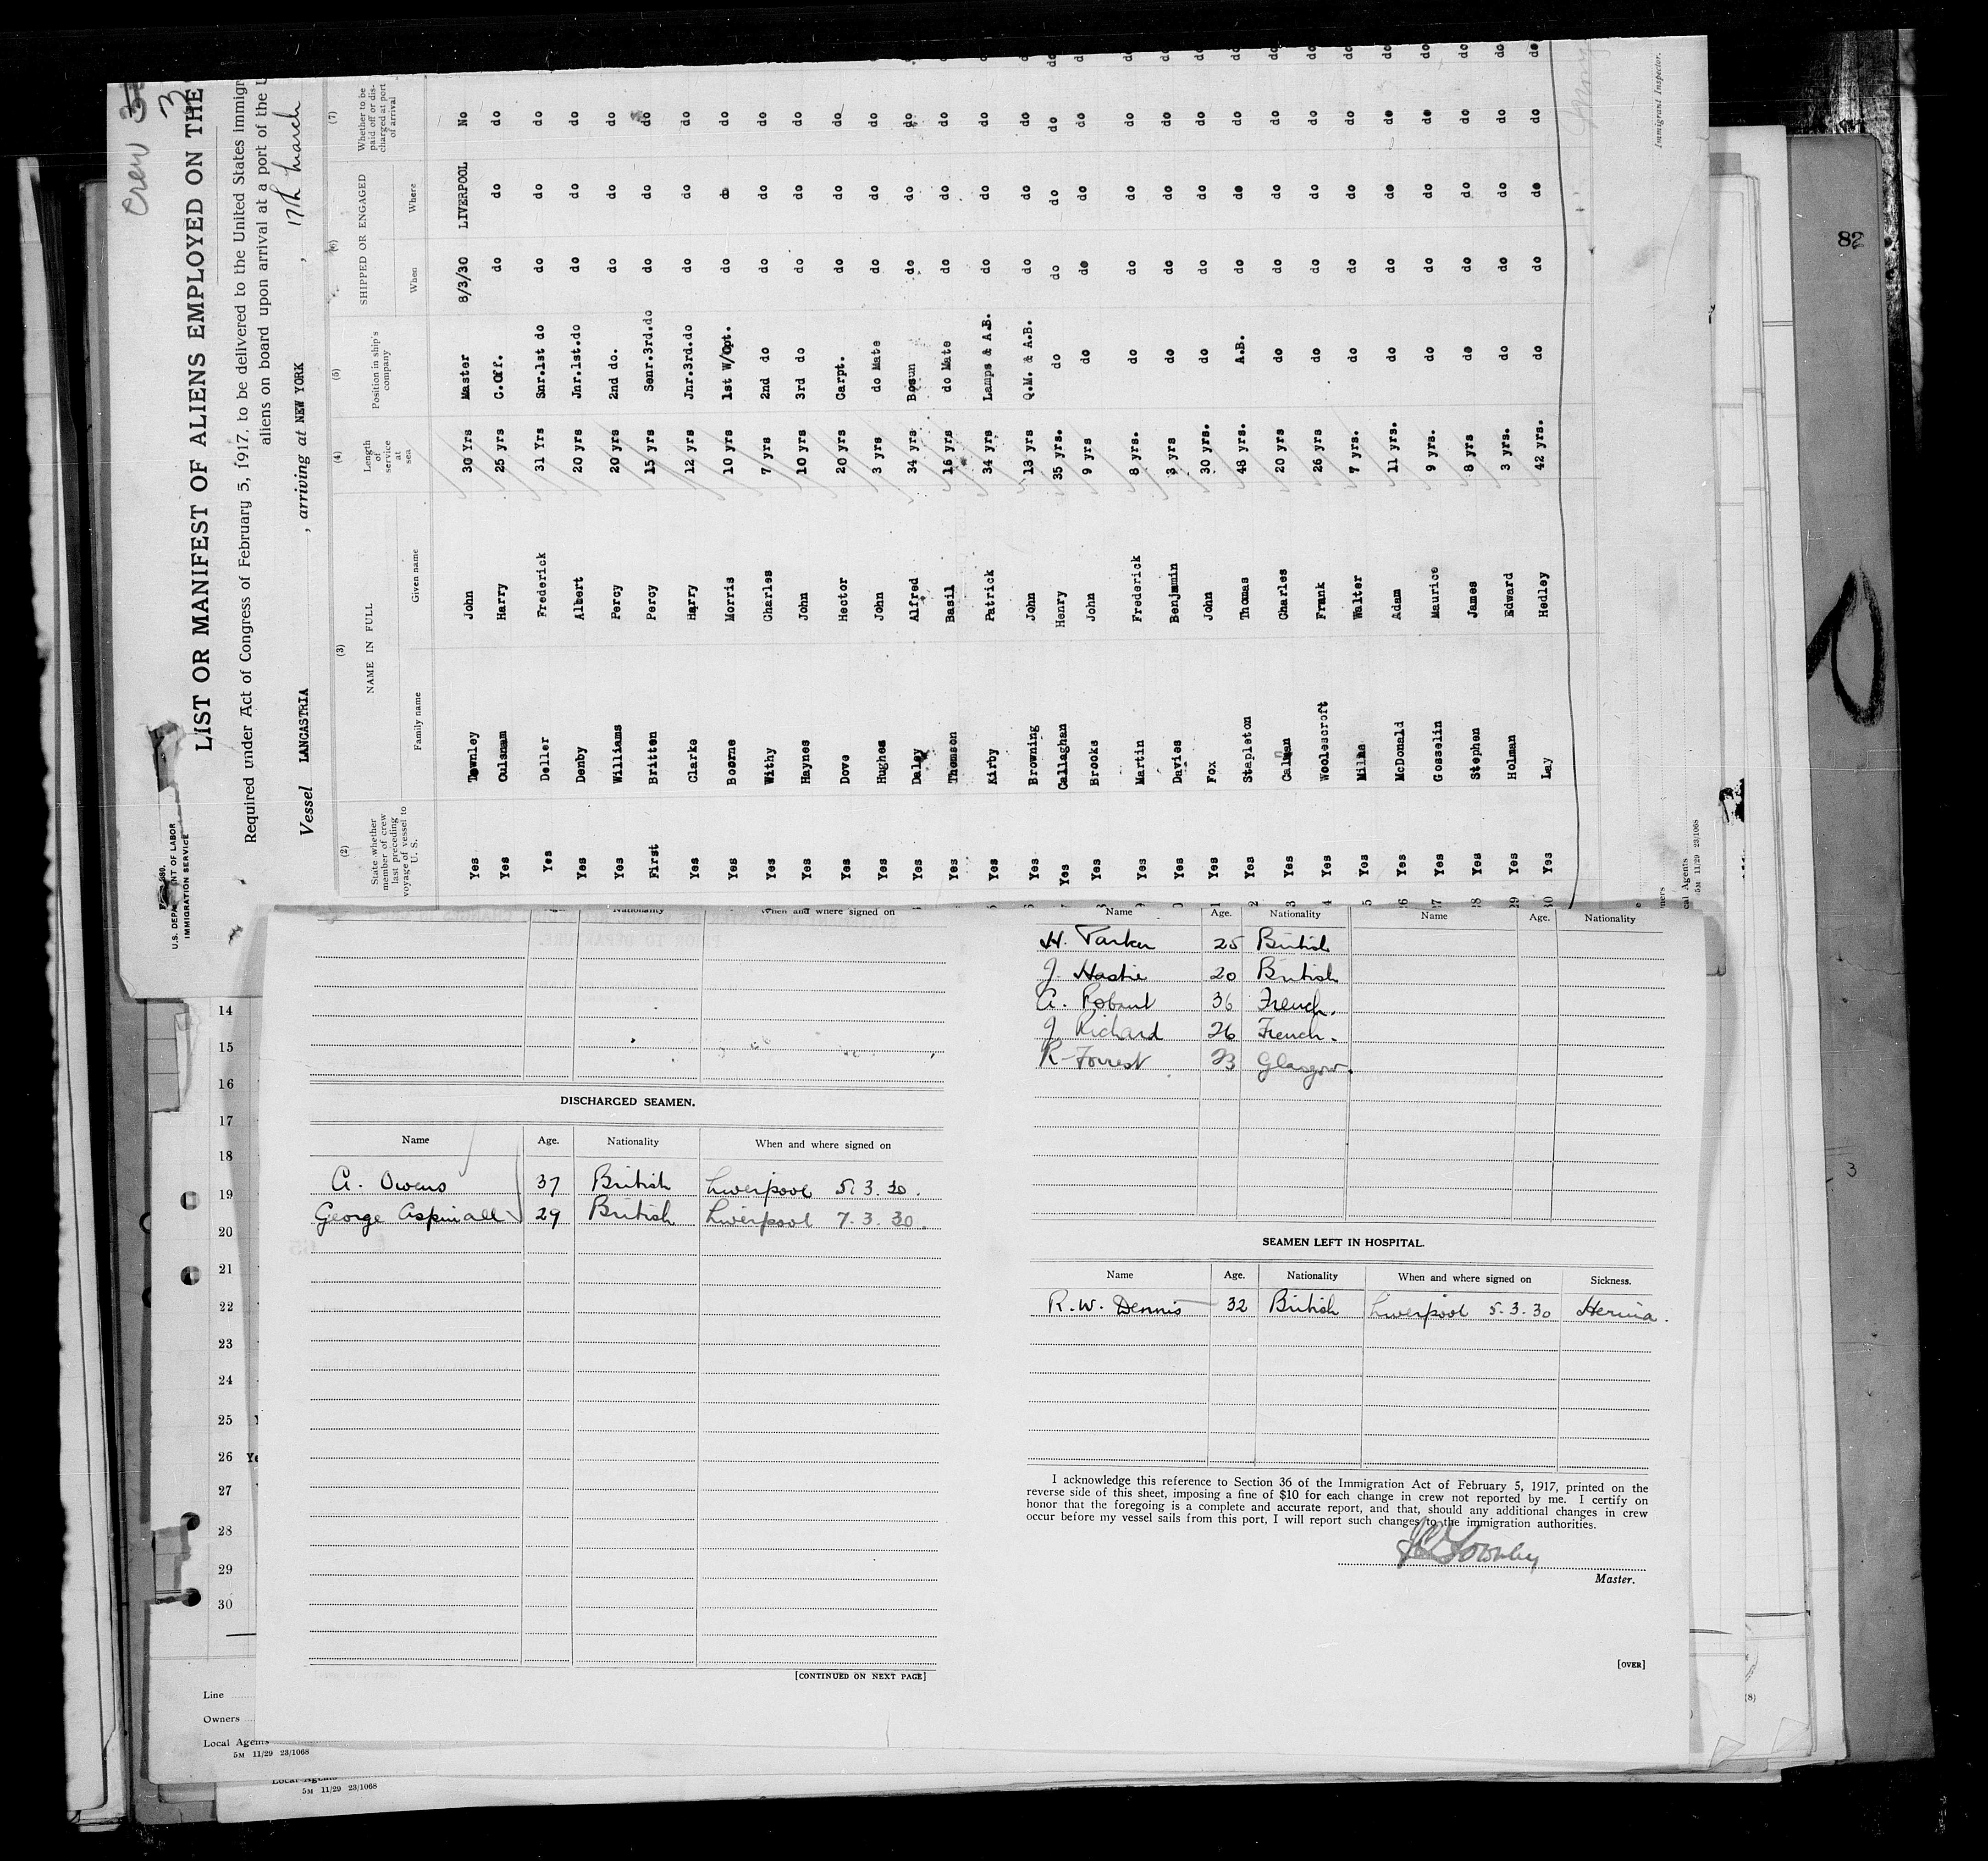 Crew
3
U.S. DEPARTMENT OF LABOR
IMMIGRATION SERVICE
LIST OR MANIFEST OF ALIENS EMPLOYED ON THE
Required under Act of Congress of February 5, 1917, to be delivered to the United States immigr
aliens on board upon arrival at a port of the U
Vessel LANCASTRIA , arriving at NEW YORK , 17th March
(2) (3) (4) (5) (6) (7)
State whether member of crew last preceding voyage of vessel to U. S. NAME IN FULL Family name Given name Length of service at sea Position in ship's company SHIPPED OR ENGAGED When Where Whether to be paid off or discharged at port of arrival
Yes Townley John 30 Yrs Master 8/3/30 LIVERPOOL No
Yes Oulsnam Harry 25 yrs C.Off. do do do
Yes Deller Frederick 31 Yrs Snr.1st do do do do
Yes Denby Albert 20 yrs Jnr.1st.do do do do
Yes Williams Percy 20 yrs 2nd do. do do do
First Britten Percy 15 yrs Senr.3rd.do do do do
Yes Clarke Harry 12 yrs Jnr.3rd.do do do do
Yes Boorne Morris 10 yrs 1st W/Opt. do do do
Yes Withy Charles 7 yrs 2nd do do do do
Yes Haynes John 10 yrs 3rd do do do do
Yes Dove Hector 20 yrs Carpt. do do do
Yes Hughes John 3 yrs do Mate do do do do
Yes Daley Alfred 34 yrs Bosun do do do do
Yes Thomson Basil 16 yrs do Mate do do do do
Yes Kirby Patrick 34 yrs Lamps & A.B. do do do do
Yes Browning John 13 yrs Q.M. & A.B. do do do do
Yes Callaghan Henry 35 yrs. do do do do do
Yes Brooks John 9 yrs do do do do do
Yes Martin Frederick 8 yrs. do do do do do
Yes Davies Benjamin 3 yrs do do do do do
Yes Fox John 30 yrs. do do do do do
Yes Stapleton Thomas 48 yrs. A.B. do do do do
Yes Calman Charles 20 yrs do do do do do
Yes Woolescroft Frank 26 yrs do do do do do
Yes Milne Walter 7 yrs. do do do do do
Yes McDonald Adam 11 yrs. do do do do do
Yes Gosselin Maurice 9 yrs. do do do do do
Yes Stephen James 8 yrs do do do do do
Yes Holman Edward 3 yrs. do do do do do
Yes Lay Hedley 42 yrs. do do do do do
Immigrant Inspector.
cal Agents
5M 11/29 23/1068
82
3
14
15
16
17
18
19
20
21
22
23
24
25
26
27
28
29
30
Line
Owners
Local Agents
5M 11/29 23/1068
Local Agents
5M 11/29 23/1068
Nationality When and where signed on
DISCHARGED SEAMEN.
Name Age. Nationality When and where signed on
A. Owens 37 British Liverpool 5.3.30.
George Aspinall 29 British Liverpool 7.3.30.
[CONTINUED ON NEXT PAGE]
Name Age. Nationality Name Age. Nationality
H. Parker 25 British
J. Hastie 20 British
A. Robant 36 French.
J Richard 26 French.
R Forrest 23 Glasgow.
SEAMEN LEFT IN HOSPITAL.
Name Age. Nationality When and where signed on Sickness.
R.W. Dennis 32 British Liverpool 5.3.30 Hernia.
I acknowledge this reference to Section 36 of the Immigration Act of February 5, 1917, printed on the
reverse side of this sheet, imposing a fine of $10 for each change in crew not reported by me. I certify on
honor that the foregoing is a complete and accurate report, and that, should any additional changes in crew
occur before my vessel sails from this port, I will report such changes to the immigration authorities.
Townley
Master.
[OVER]
(8)